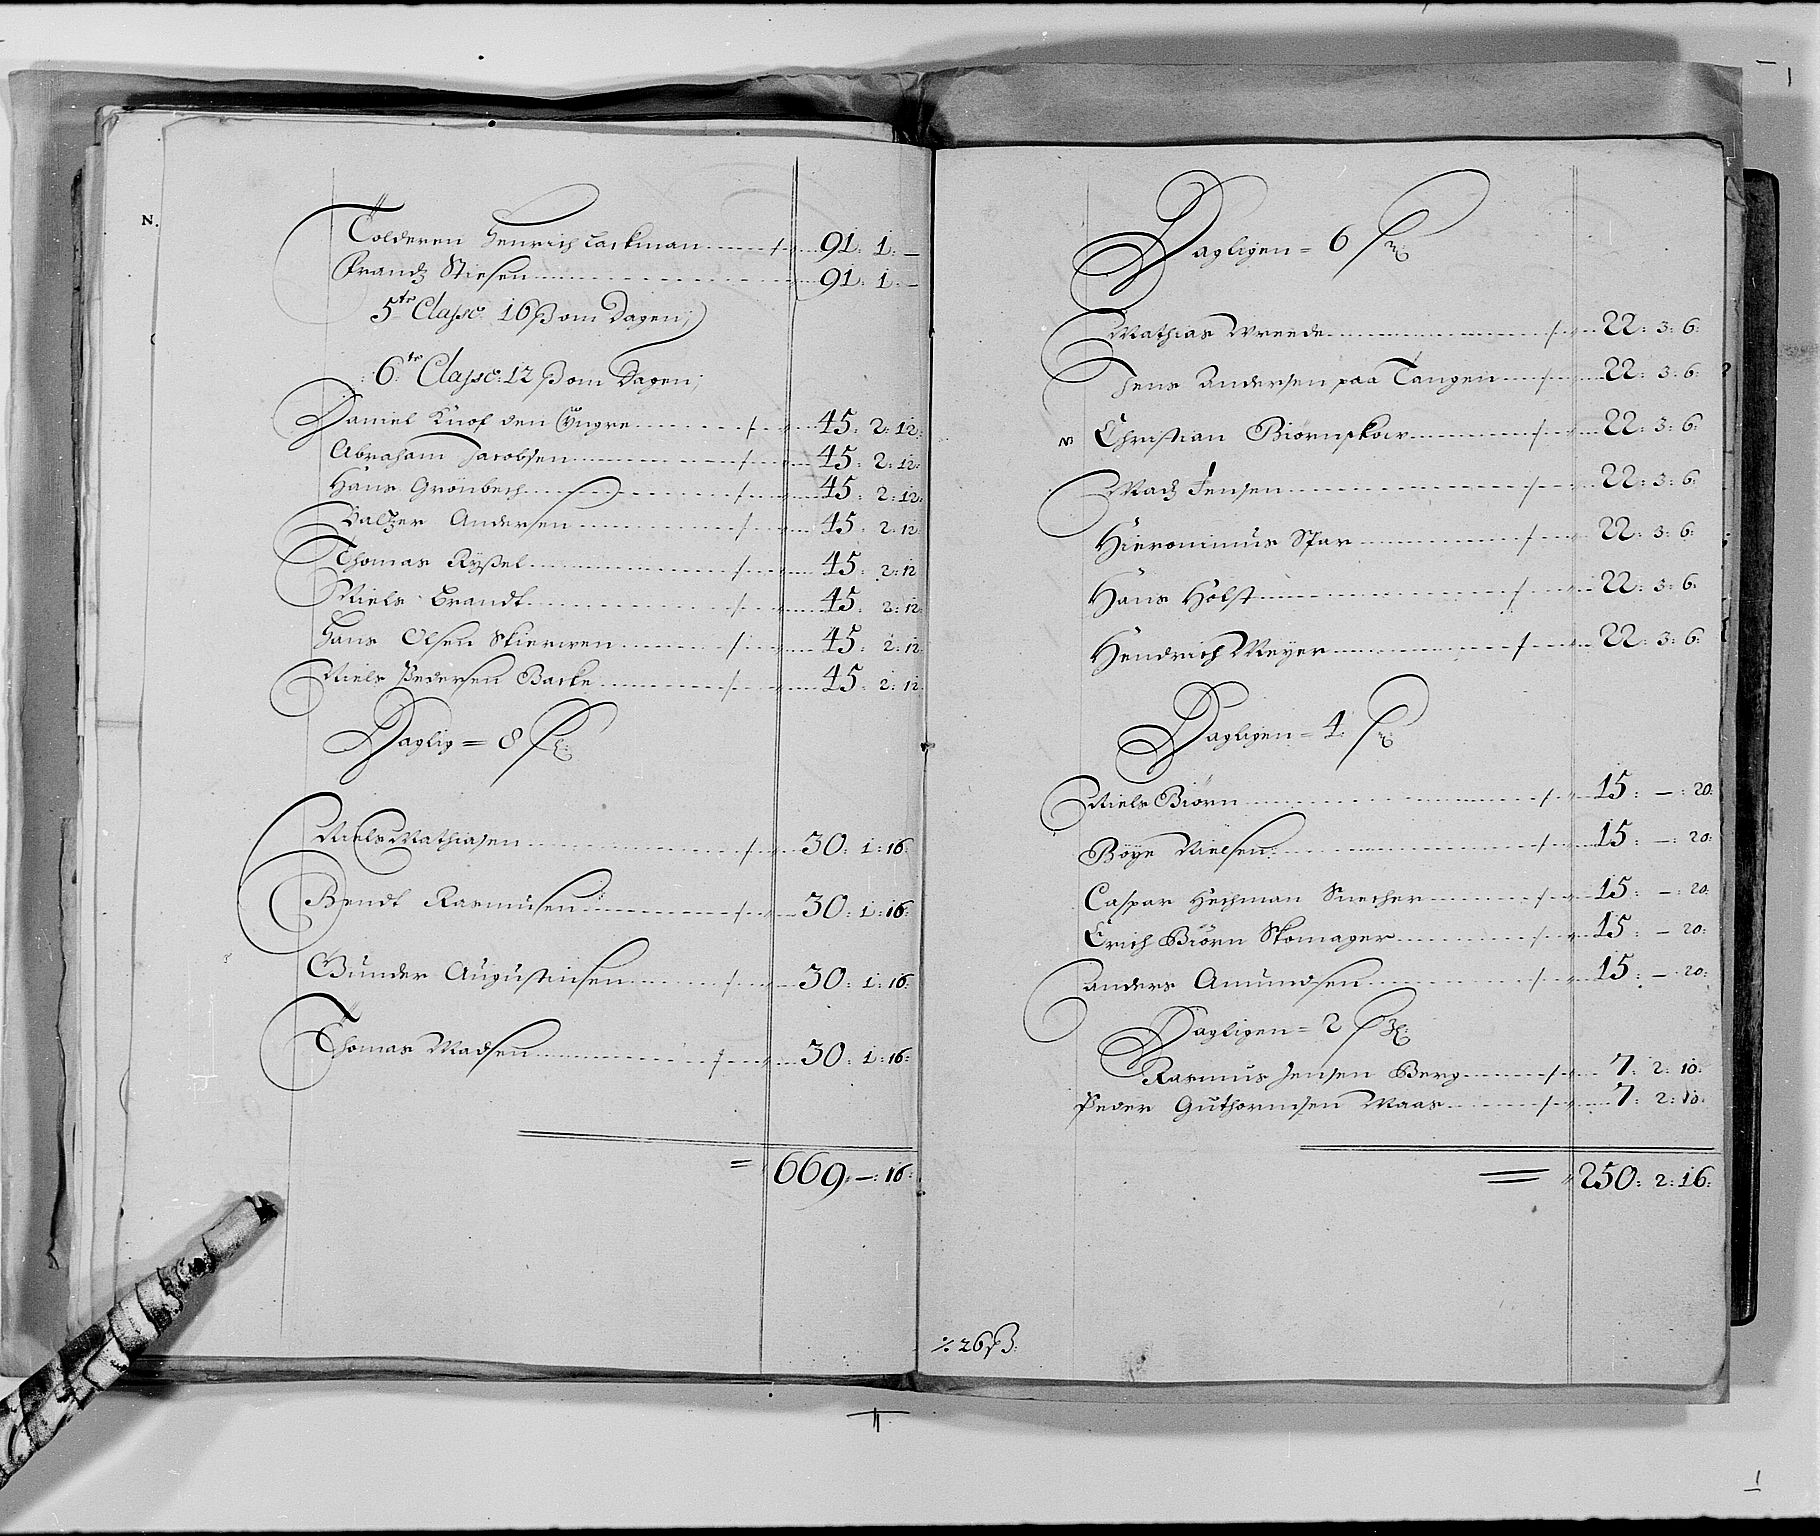 N.
Tolderen Henrich Lackman 91: 1: –
Frandz Stiesen 91: 1: –
5te Classe: 16 β om Dagen;
6te Classe: 12 β om Dagen;
Daniel Knof den Yngre 45: 2: 12:
Abraham Jacobsen 45: 2: 12:
Hans Grönbech 45: 2: 12:
Baltzer Andersen 45: 2: 12
Thomas Ryssel 45: 2: 12
Niels Brandt 45: 2: 12:
Hans Olsen Skierven 45: 2: 12:
Niels Pedersen Backe 45: 2: 12
Daglig = 8 sk:
Niels Mathiasen 30: 1: 16:
Bendt Rasmusen 30: 1: 16:
Gunder Augustinsen 30: 1: 16:
Thomas Madsen 30: 1: 16:
= 669: –: 16:
Dagligen = 6 sk:
Mathias Wreede 22: 3: 6:
Jens Andersen paa Tangen 22: 3: 6:
Christian Biørnskow 22: 3: 6:
Madz Jensen 22: 3: 6:
Hieronimus Spar 22: 3: 6:
Hans Holst 22: 3: 6:
Hendrich Meyer 22: 3: 6:
Dagligen = 4: sk:
Niels Biörn 15: –: 20:
Böye Nielsen 15: –: 20:
Caspar Hechman Snecher 15: –: 20:
Erich Biörn Skomager 15: – 20:
Anders Amundsen 15: –: 20:
Dagligen = 2 sk:
Rasmus Jensen Berg 7: 2: 10:
Peder Guthormsen Maas 7: 2: 10:
= 250: 2: 16:
⁒ 26 β: